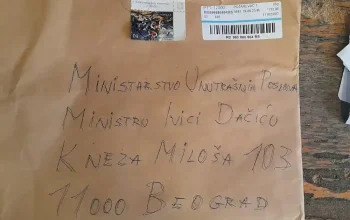 MINISTARSTVO UNUTRAŠNJIH POSLOVA
MINISTRU IVICI DAČIĆU
KNEZA MILOŠA 103
11000 BEOGRAD